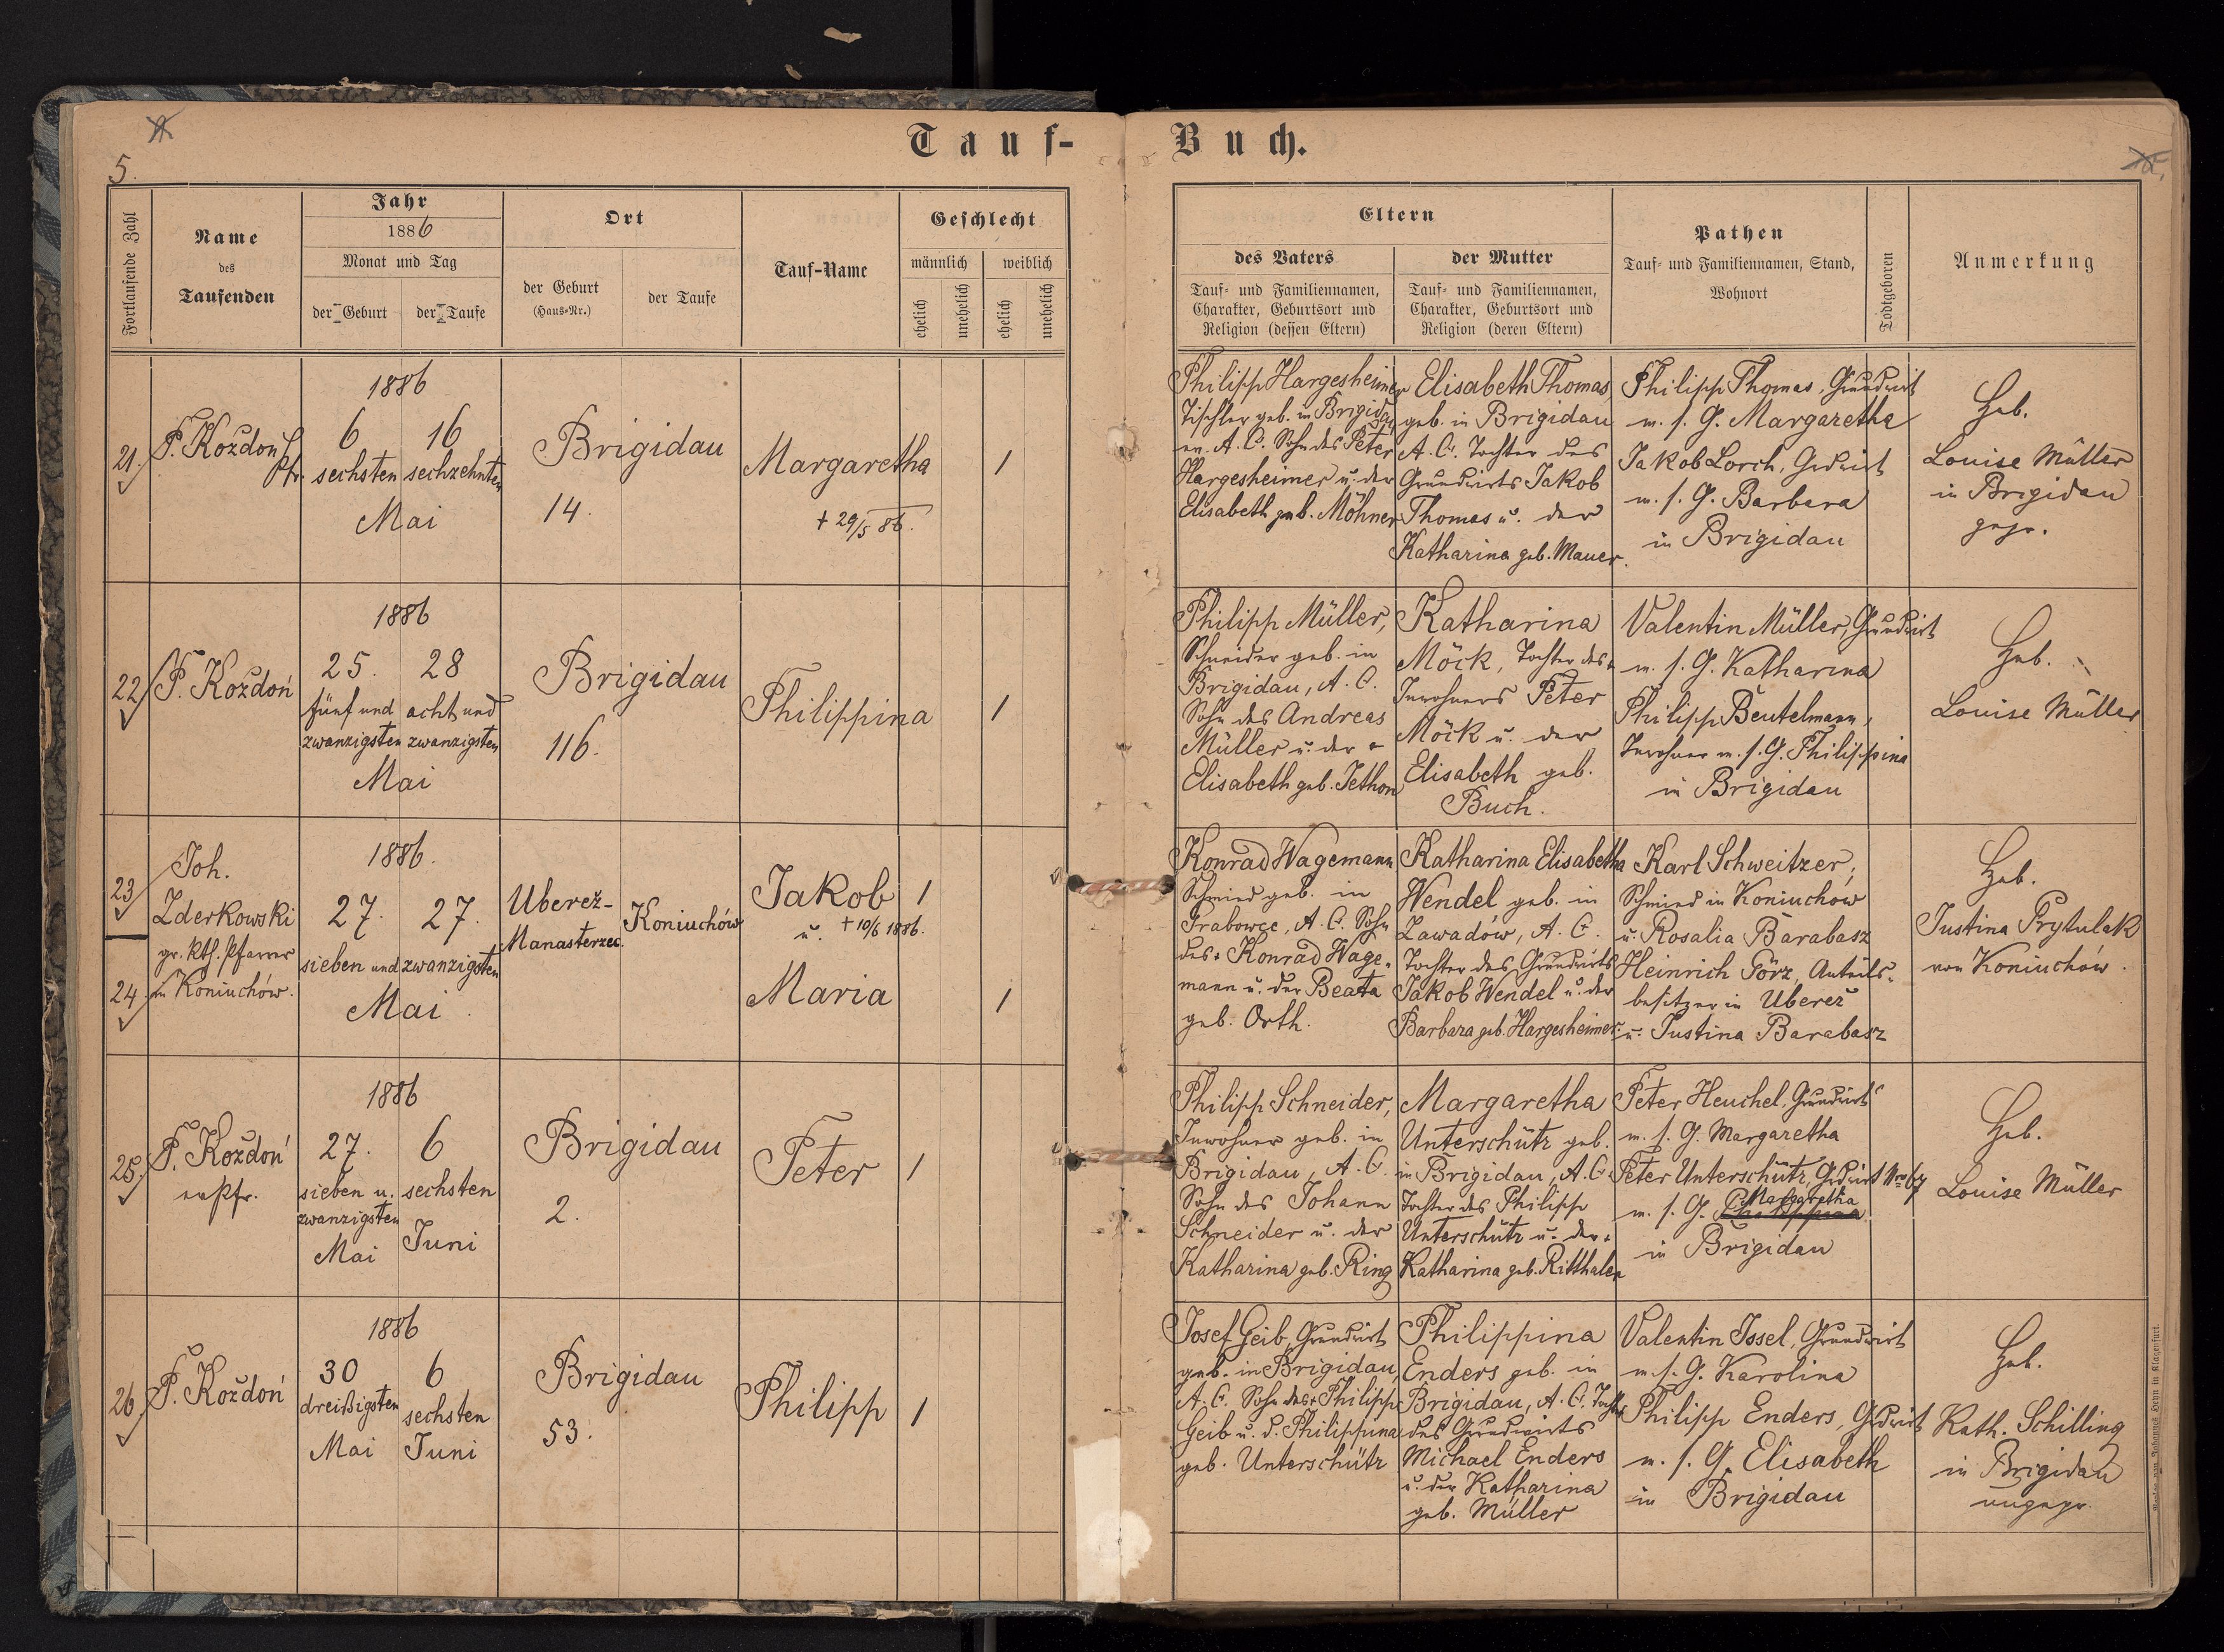 Tauf-
Buch.
5.
Fortlaufende Zahl
Name
des
Taufenden
Jahr
1886
Monat und Tag
der Geburt
der Taufe
Ort
der Geburt
(Haus-Nr.)
der Taufe
Tauf-Name
Geschlecht
männlich
weiblich
ehelich
unehelich
ehelich
unehelich
Eltern
des Vaters
Tauf- und Familiennamen,
Charakter, Geburtsort und
Religion (dessen Eltern)
der Mutter
Tauf- und Familiennamen,
Charakter, Geburtsort und
Religion (deren Eltern)
Pathen
Tauf- und Familiennamen, Stand,
Wohnort
Todtgeboren
Anmerkung
21.
P. Koždoń
Pfr.
1886
6
sechsten
16
sechzehnten
Mai
Brigidau
14.
Margaretha
+ 29/5 86.
1
Philipp Hargesheimer
Tischler geb. in Brigidau
ev. A. C. Sohn des Peter
Hargesheimer u. der
Elisabeth geb. Möhner
Elisabeth Thomas
geb. in Brigidau
A. C. Tochter des
Grundwirts Jakob
Thomas u. der
Katharina geb. Mauer.
Philipp Thomas, Grundwirt
m. s. G. Margaretha
Jakob Lorch, Grdwirt
m. s. G. Barbara
in Brigidau
Heb.
Louise Müller
in Brigidau
gepr.
22
P. Koždoń
1886
25.
fünf und
zwanzigsten
28
acht und
zwanzigsten
Mai
Brigidau
116.
Philippina
1
Philipp Müller,
Schneider geb. in
Brigidau, A. C.
Sohn des Andreas
Müller u. der +
Elisabeth geb. Jethon
Katharina
Möck, Tochter des +
Inwohners Peter
Möck u. der
Elisabeth geb.
Buch.
Valentin Müller, Grundwirt
m. s. G. Katharina
Philipp Beutelmann,
Inwohner m. s. G. Philippina
in Brigidau
Heb.
Louise Müller
23
24.
Joh.
Zderkowski
gr. kth. Pfarrer
in Koniuchów.
1886.
27.
27.
sieben und zwanzigsten
Mai
Uberež-
Manasterzec.
Koniuchów
Jakob
1
u. + 10/6 1886.
Maria
1
Konrad Wagemann
Schmied geb. in
Grabowce, A. C. Sohn
des + Konrad Wage-
mann u. der Beata
geb. Orth.
Katharina Elisabetha
Wendel geb. in
Zawadów, A. C.
Tochter des Grundwirts
Jakob Wendel u. der
Barbara geb. Hargesheimer.
Karl Schweitzer,
Schmied in Koniuchów
u. Rosalia Barabasz
Heinrich Görz, Anteils-
besitzer in Uberež
u. Justina Barabasz
Heb.
Justina Prytulak
von Koniuchów.
25.
P. Koždoń
ev Pfr.
1886
27.
sieben u.
zwanzigsten
Mai
6
sechsten
Juni
Brigidau
2.
Peter
1
Philipp Schneider,
Inwohner geb. in
Brigidau, A. C.
Sohn des Johann
Schneider u. der
Katharina geb. Ring
Margaretha
Unterschütz geb.
in Brigidau, A. C.
Tochter des Philipp
Unterschütz u. der +
Katharina geb. Ritthaler
Peter Heuchel, Grundwirt
m. s. G. Margaretha
Peter Unterschütz, Grdwirt Nro 67
Margaretha
m. s. G. Philippina
in Brigidau
Heb.
Louise Müller
26.
P. Koždoń
1886
30
dreißigsten
Mai
6
sechsten
Juni
Brigidau
53.
Philipp
1
Josef Geib, Grundwirt
geb. in Brigidau,
A. C. Sohn des + Philipp
Geib u. d. Philippina
geb. Unterschütz
Philippina
Enders geb. in
Brigidau, A. C. Tochter
des Grundwirts
Michael Enders
u. der Katharina
geb. Müller
Valentin Issel, Grundwirt
m. s. G. Karolina
Philipp Enders, Grdwirt
m. s. G. Elisabeth
in Brigidau
Heb.
Kath. Schilling
in Brigidau
ungepr.